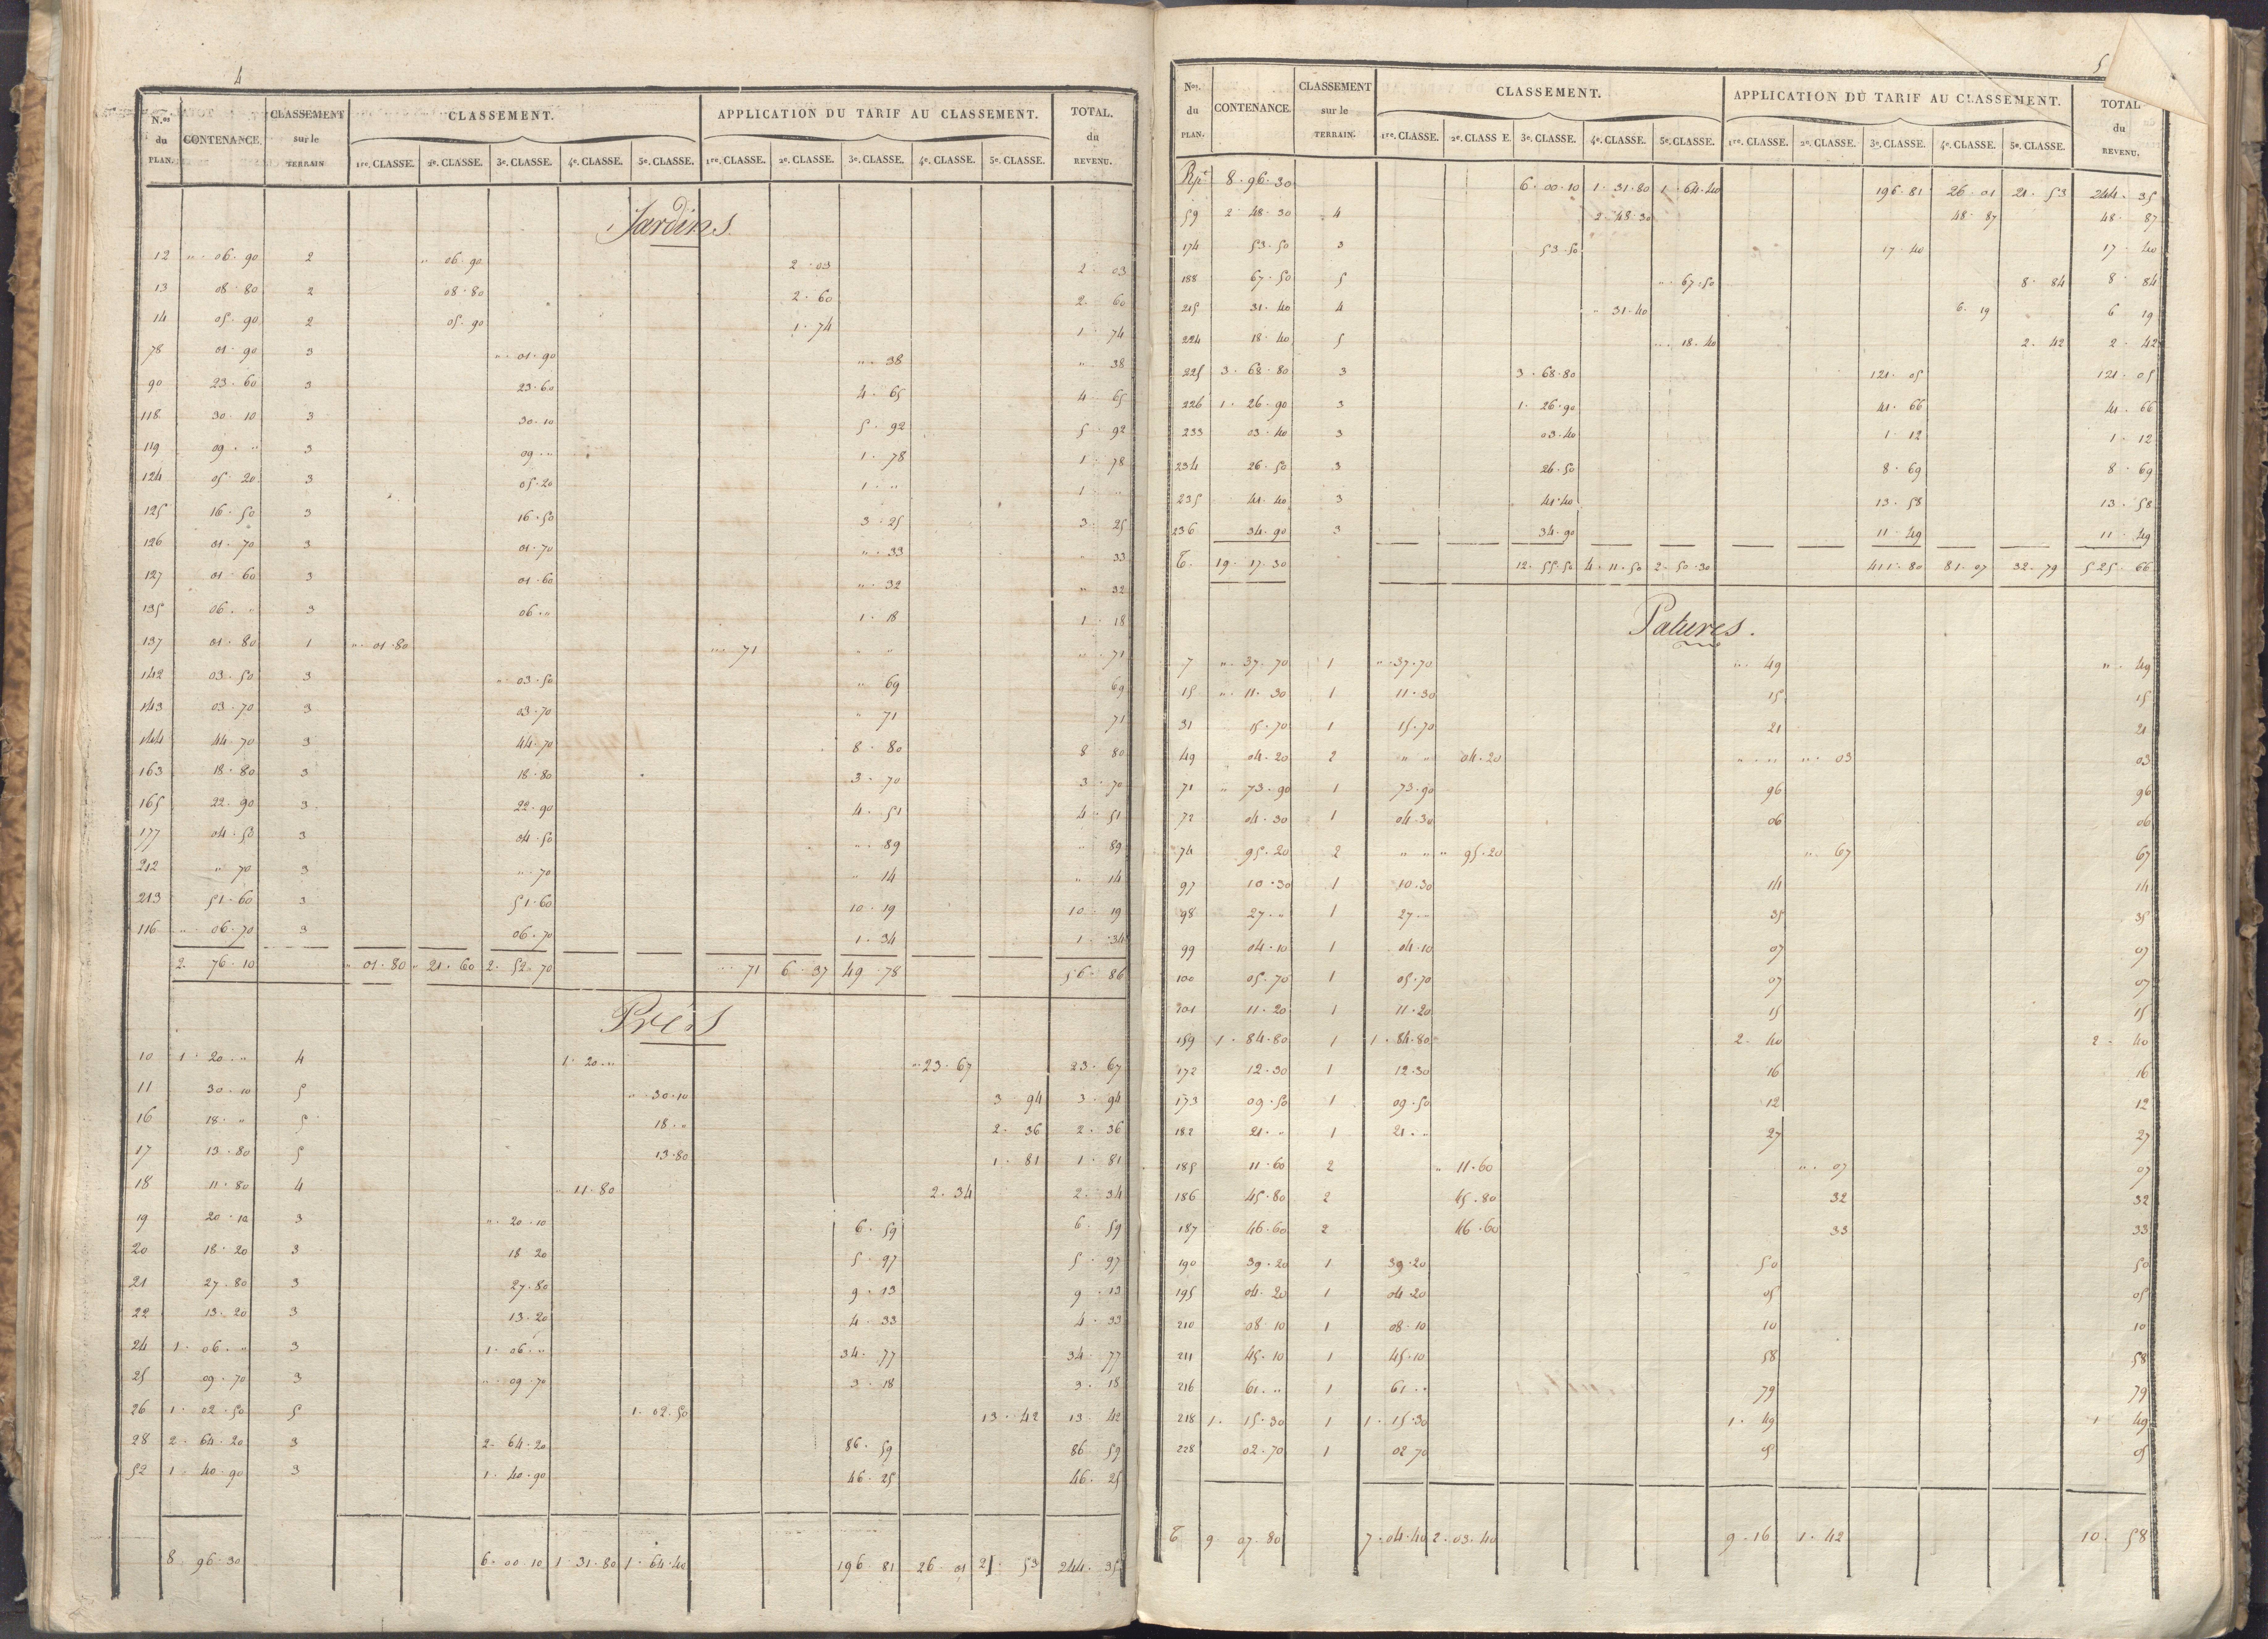 4
N.os du PLAN. CONTENANCE. CLASSEMENT sur le TERRAIN CLASSEMENT. APPLICATION DU TARIF AU CLASSEMENT. TOTAL. du REVENU.
1re. CLASSE. 2e. CLASSE. 3e. CLASSE. 4e. CLASSE. 5e. CLASSE. 1re. CLASSE. 2e. CLASSE. 3e. CLASSE. 4e. CLASSE. 5e. CLASSE.
Jardins.
12 " 06.90 2 " 06.90 2.03 2.03
13 08.80 2 08.80 2.60 2.60
14 05.90 2 05.90 1.74 1.74
78 01.90 3 " 01.90 " 38 " 38
90 23.60 3 23.60 4.65 4.65
118 30.10 3 30.10 5.92 5.92
119 09." 3 09." 1.78 1.78
124 05.20 3 05.20 1." 1."
125 16.50 3 16.50 3.25 3.25
126 01.70 3 01.70 " 33 " 33
127 01.60 3 01.60 " 32 " 32
135 06." 3 06." 1.18 1.18
137 01.80 1 " 01.80 " 71 " " " 71
142 03.50 3 " 03.50 " 69 69
143 03.70 3 03.70 " 71 71
144 44.70 3 44.70 8.80 8.80
163 18.80 3 18.80 3.70 3.70
165 22.90 3 22.90 4.51 4.51
177 04.50 3 04.50 " 89 " 89
212 " 70 3 " 70 " 14 " 14
213 51.60 3 51.60 10.19 10.19
116 " 06.70 3 06.70 1.34 1.34
2.76.10 " 01.80 " 21.60 2.52.70 " 71 6.37 49.78 56.86
Prés
10 1.20." 4 1.20." " 23.67 23.67
11 30.10 5 " 30.10 3.94 3.94
16 18." 5 18." 2.36 2.36
17 13.80 5 13.80 1.81 1.81
18 11.80 4 " 11.80 2.34 2.34
19 20.10 3 " 20.10 6.59 6.59
20 18.20 3 18.20 5.97 5.97
21 27.80 3 27.80 9.13 9.13
22 13.20 3 13.20 4.33 4.33
24 1.06." 3 1.06." 34.77 34.77
25 09.70 3 " 09.70 3.18 3.18
26 1.02.50 5 1.02.50 13.42 13.42
28 2.64.20 3 2.64.20 86.59 86.59
52 1.40.90 3 1.40.90 46.25 46.25
8.96.30 6.00.10 1.31.80 1.64.40 196.81 26.01 21.53 244.35
5
Nos. du PLAN. CONTENANCE. CLASSEMENT sur le TERRAIN. CLASSEMENT. APPLICATION DU TARIF AU CLASSEMENT. TOTAL du REVENU.
1re. CLASSE. 2e. CLASS E. 3e. CLASSE. 4e. CLASSE. 5e. CLASSE. 1re. CLASSE. 2e. CLASSE. 3e. CLASSE. 4e. CLASSE. 5e. CLASSE.
Rpt 8.96.30 6.00.10 1.31.80 1.64.40 196.81 26.01 21.53 244.35
59 2.48.30 4 2.48.30 48.87 48.87
174 53.50 3 53.50 17.40 17.40
188 67.50 5 " 67.50 8.84 8.84
215 31.40 4 " 31.40 6.19 6.19
224 18.40 5 " 18.40 2.42 2.42
225 3.68.80 3 3.68.80 121.05 121.05
226 1.26.90 3 1.26.90 41.66 41.66
233 03.40 3 03.40 1.12 1.12
234 26.50 3 26.50 8.69 8.69
235 41.40 3 41.40 13.58 13.58
236 34.90 3 34.90 11.49 11.49
T. 19.17.30 12.55.50 4.11.50 2.50.30 411.80 81.07 32.79 525.66
Patures.
7 " 37.70 1 " 37.70 " 49 " 49
15 " 11.30 1 11.30 15 15
31 15.70 1 15.70 21 21
49 04.20 2 " " 04.20 " " " 03 03
71 " 73.90 1 73.90 96 96
72 04.30 1 04.30 06 06
74 95.20 2 " " " 95.20 " 67 67
97 10.30 1 10.30 14 14
98 27." 1 27." 35 35
99 04.10 1 04.10 07 07
100 05.70 1 05.70 07 07
101 11.20 1 11.20 15 15
159 1.84.80 1 1.84.80 2.40 2.40
172 12.30 1 12.30 16 16
173 09.50 1 09.50 12 12
182 21." 1 21." 27 27
185 11.60 2 " 11.60 " 07 07
186 45.80 2 45.80 32 32
187 46.60 2 46.60 33 33
190 39.20 1 39.20 50 50
195 04.20 1 04.20 05 05
210 08.10 1 08.10 10 10
211 45.10 1 45.10 58 58
216 61." 1 61." 79 79
218 1.15.30 1 1.15.30 1.49 1.49
228 02.70 1 02.70 05 05
T 9.07.80 7.04.40 2.03.40 9.16 1.42 10.58